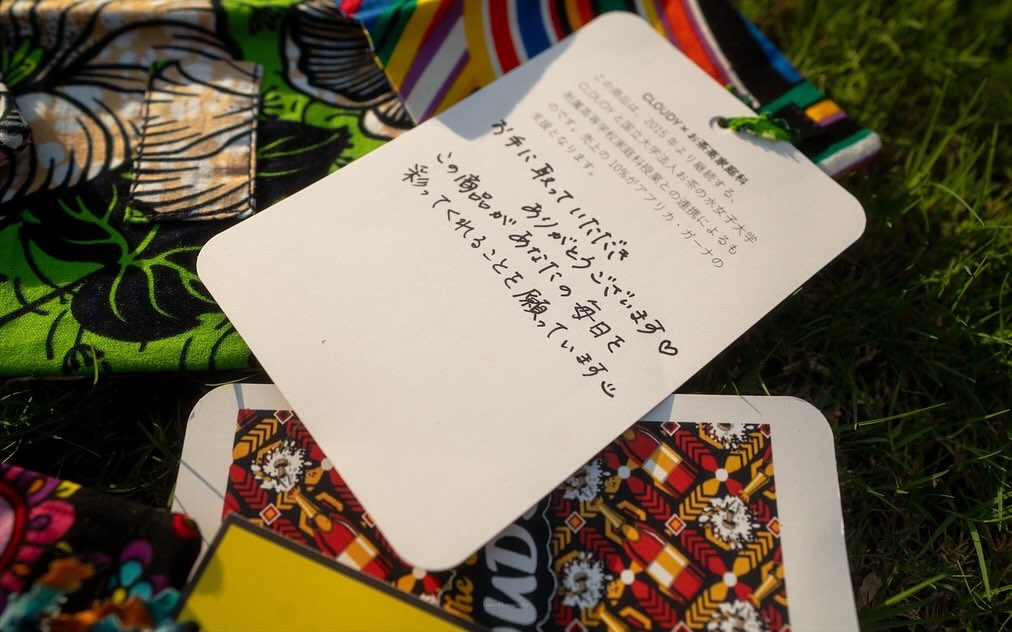 CLOUDY×お茶高家庭科
この商品は、2015年より継続する、
CLOUDYと国立大学法人お茶の水女子大学
附属高等学校家庭科授業との連携によるも
のです。売上の10%がアフリカ・ガーナの
支援となります。
お手に取っていただき
ありがとうございます♡
この商品があなたの毎日を
彩ってくれることを願っています
The